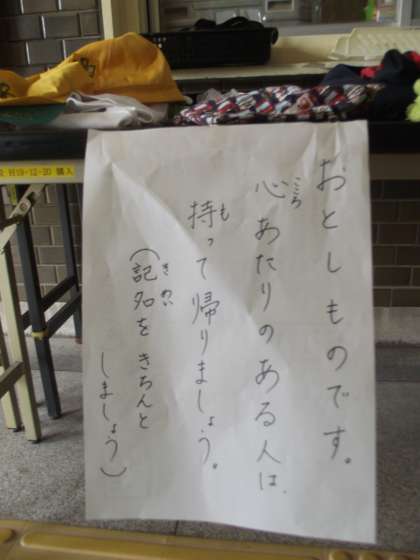 おとしものです。
心あたりのある人は、
こころ
持って帰りましょう。
も
(記名をきちんと
きめい
しましょう)
H19-12-20 購入